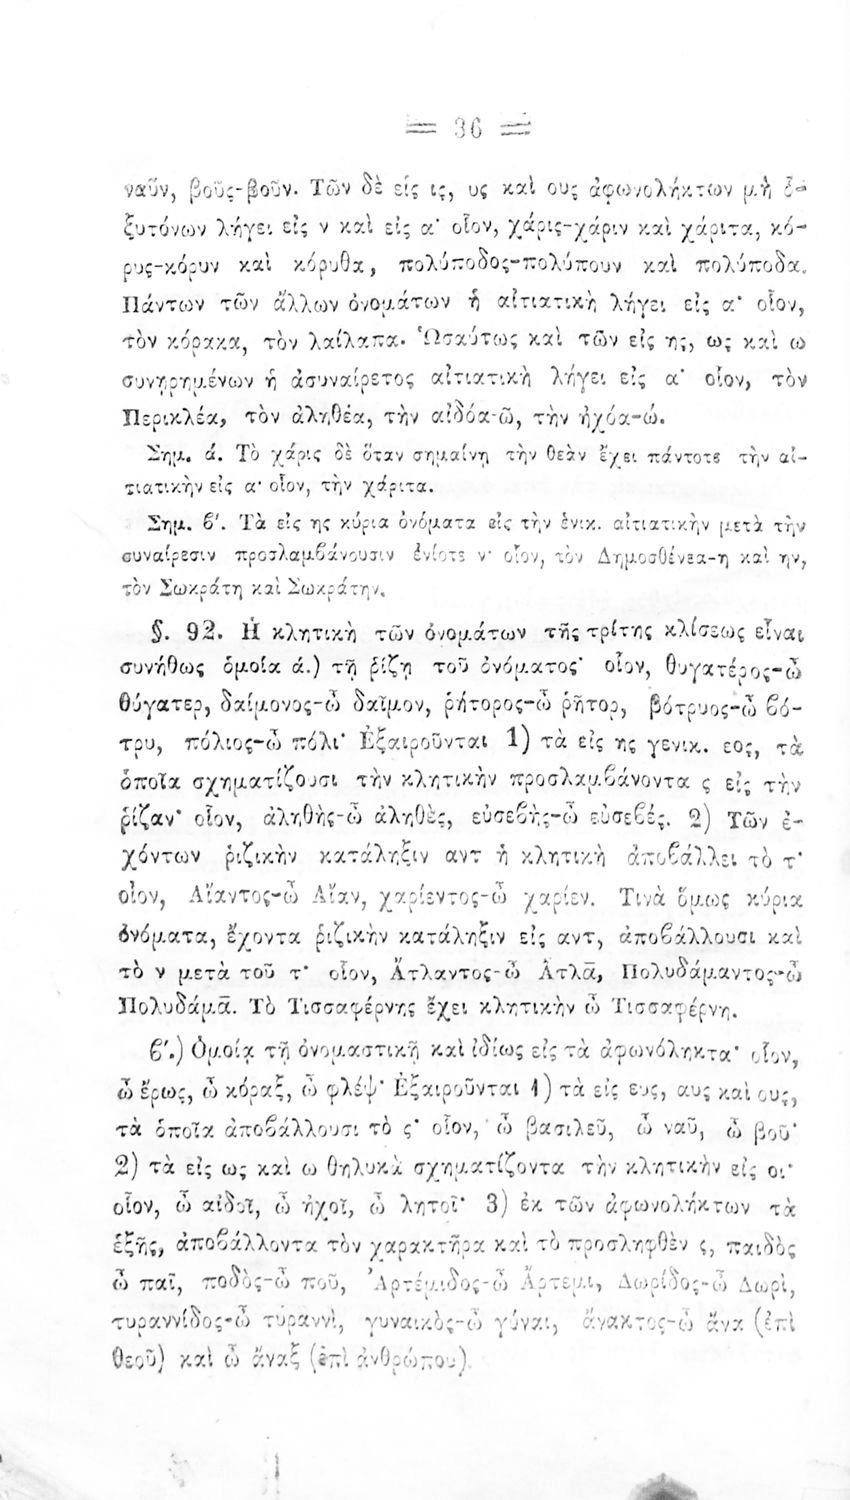 = 36 =
ναῦν, βοῦς-βοῦν. Τῶν δὲ εἰς ις, υς καὶ ους ἀφωνολήκτων μὴ ὀ-
ξυτόνων λήγει εἰς ν καὶ εἰς α· οἷον, χάρις-χάριν καὶ χάριτα, κό-
ρυς-κόρυν καὶ κόρυθα, πολύποδος-πολύπουν καὶ πολύποδα.
Πάντων τῶν ἄλλων ὀνομάτων ἡ αἰτιατικὴ λήγει εἰς α· οἷον,
τὸν κόρακα, τὸν λαίλαπα. Ὡσαύτως καὶ τῶν εἰς ης, ως καὶ ω
συνῃρημένων ἡ ἀσυναίρετος αἰτιατικὴ λήγει εἰς α· οἷον, τὸν
Περικλέα, τὸν ἀληθέα, τὴν αἰδόα-ῶ, τὴν ἠχόα-ώ.
Σημ. ά. Τὸ χάρις δὲ ὅταν σημαίνῃ τὴν θεὰν ἔχει πάντοτε τὴν αἰ-
τιατικὴν εἰς α· οἷον, τὴν χάριτα.
Σημ. ϐ'. Τὰ εἰς ης κύρια ὀνόματα εἰς τὴν ἑνικ. αἰτιατικὴν μετὰ τὴν
συναίρεσιν προσλαμϐάνουσιν ἐνίοτε ν· οἷον, τὸν Δημοσθένεα-η καὶ ην,
τὸν Σωκράτη καὶ Σωκράτην.
§. 92. Ἡ κλητικὴ τῶν ὀνομάτων τῆς τρίτης κλίσεως εἶναι
συνήθως ὁμοία ά.) τῇ ῥίζῃ τοῦ ὀνόματος· οἷον, θυγατέρος-ὦ
θύγατερ, δαίμονος-ὦ δαῖμον, ῥήτορος-ὦ ῥῆτορ, βότρυος-ὦ ϐό-
τρυ, πόλιος-ὦ πόλι· Ἐξαιροῦνται 1) τὰ εἰς ης γενικ. εος, τὰ
ὁποῖα σχηματίζουσι τὴν κλητικὴν προσλαμϐάνοντα ς εἰς τὴν
ῥίζαν· οἷον, ἀληθὴς-ὦ ἀληθὲς, εὐσεϐὴς-ὦ εὐσεϐές. 2) Τῶν ἐ-
χόντων ῥιζικὴν κατάληξιν αντ ἡ κλητικὴ ἀποϐάλλει τὸ τ·
οἷον, Αἴαντος-ὦ Αἴαν, χαρίεντος-ὦ χαρίεν. Τινὰ ὅμως κύρια
ὀνόματα, ἔχοντα ῥιζικὴν κατάληξιν εἰς αντ, ἀποϐάλλουσι καὶ
τὸ ν μετὰ τοῦ τ· οἷον, Ἄτλαντος-ὦ Ἀτλᾶ, Πολυδάμαντος-ὦ
Πολυδάμᾶ. Τὸ Τισσαφέρνης ἔχει κλητικὴν ὦ Τισσαφέρνη.
ϐ'.) Ὁμοίᾳ τῇ ὀνομαστικῇ καὶ ἰδίως εἰς τὰ ἀφωνόληκτα· οἷον,
ὦ ἔρως, ὦ κόραξ, ὦ φλέψ· Ἐξαιροῦνται 1) τὰ εἰς ευς, αυς καὶ ους,
τὰ ὁποῖα ἀποϐάλλουσι τὸ ς· οἷον, ὦ βασιλεῦ, ὦ ναῦ, ὦ βοῦ·
2) τὰ εἰς ως καὶ ω θηλυκὰ σχηματίζοντα τὴν κλητικὴν εἰς οι·
οἷον, ὦ αἰδοῖ, ὦ ἠχοῖ, ὦ λητοῖ· 3) ἐκ τῶν ἀφωνολήκτων τὰ
ἑξῆς, ἀποϐάλλοντα τὸν χαρακτῆρα καὶ τὸ προσληφθὲν ς, παιδὸς
ὦ παῖ, ποδὸς-ὦ ποῦ, Ἀρτέμιδος-ὦ Ἄρτεμι, Δωρίδος-ὦ Δωρὶ,
τυραννίδος-ὦ τυραννὶ, γυναικὸς-ὦ γύναι, ἄνακτος-ὦ ἄνα (ἐπὶ
θεοῦ) καὶ ὦ ἄναξ (ἐπὶ ἀνθρώπου)